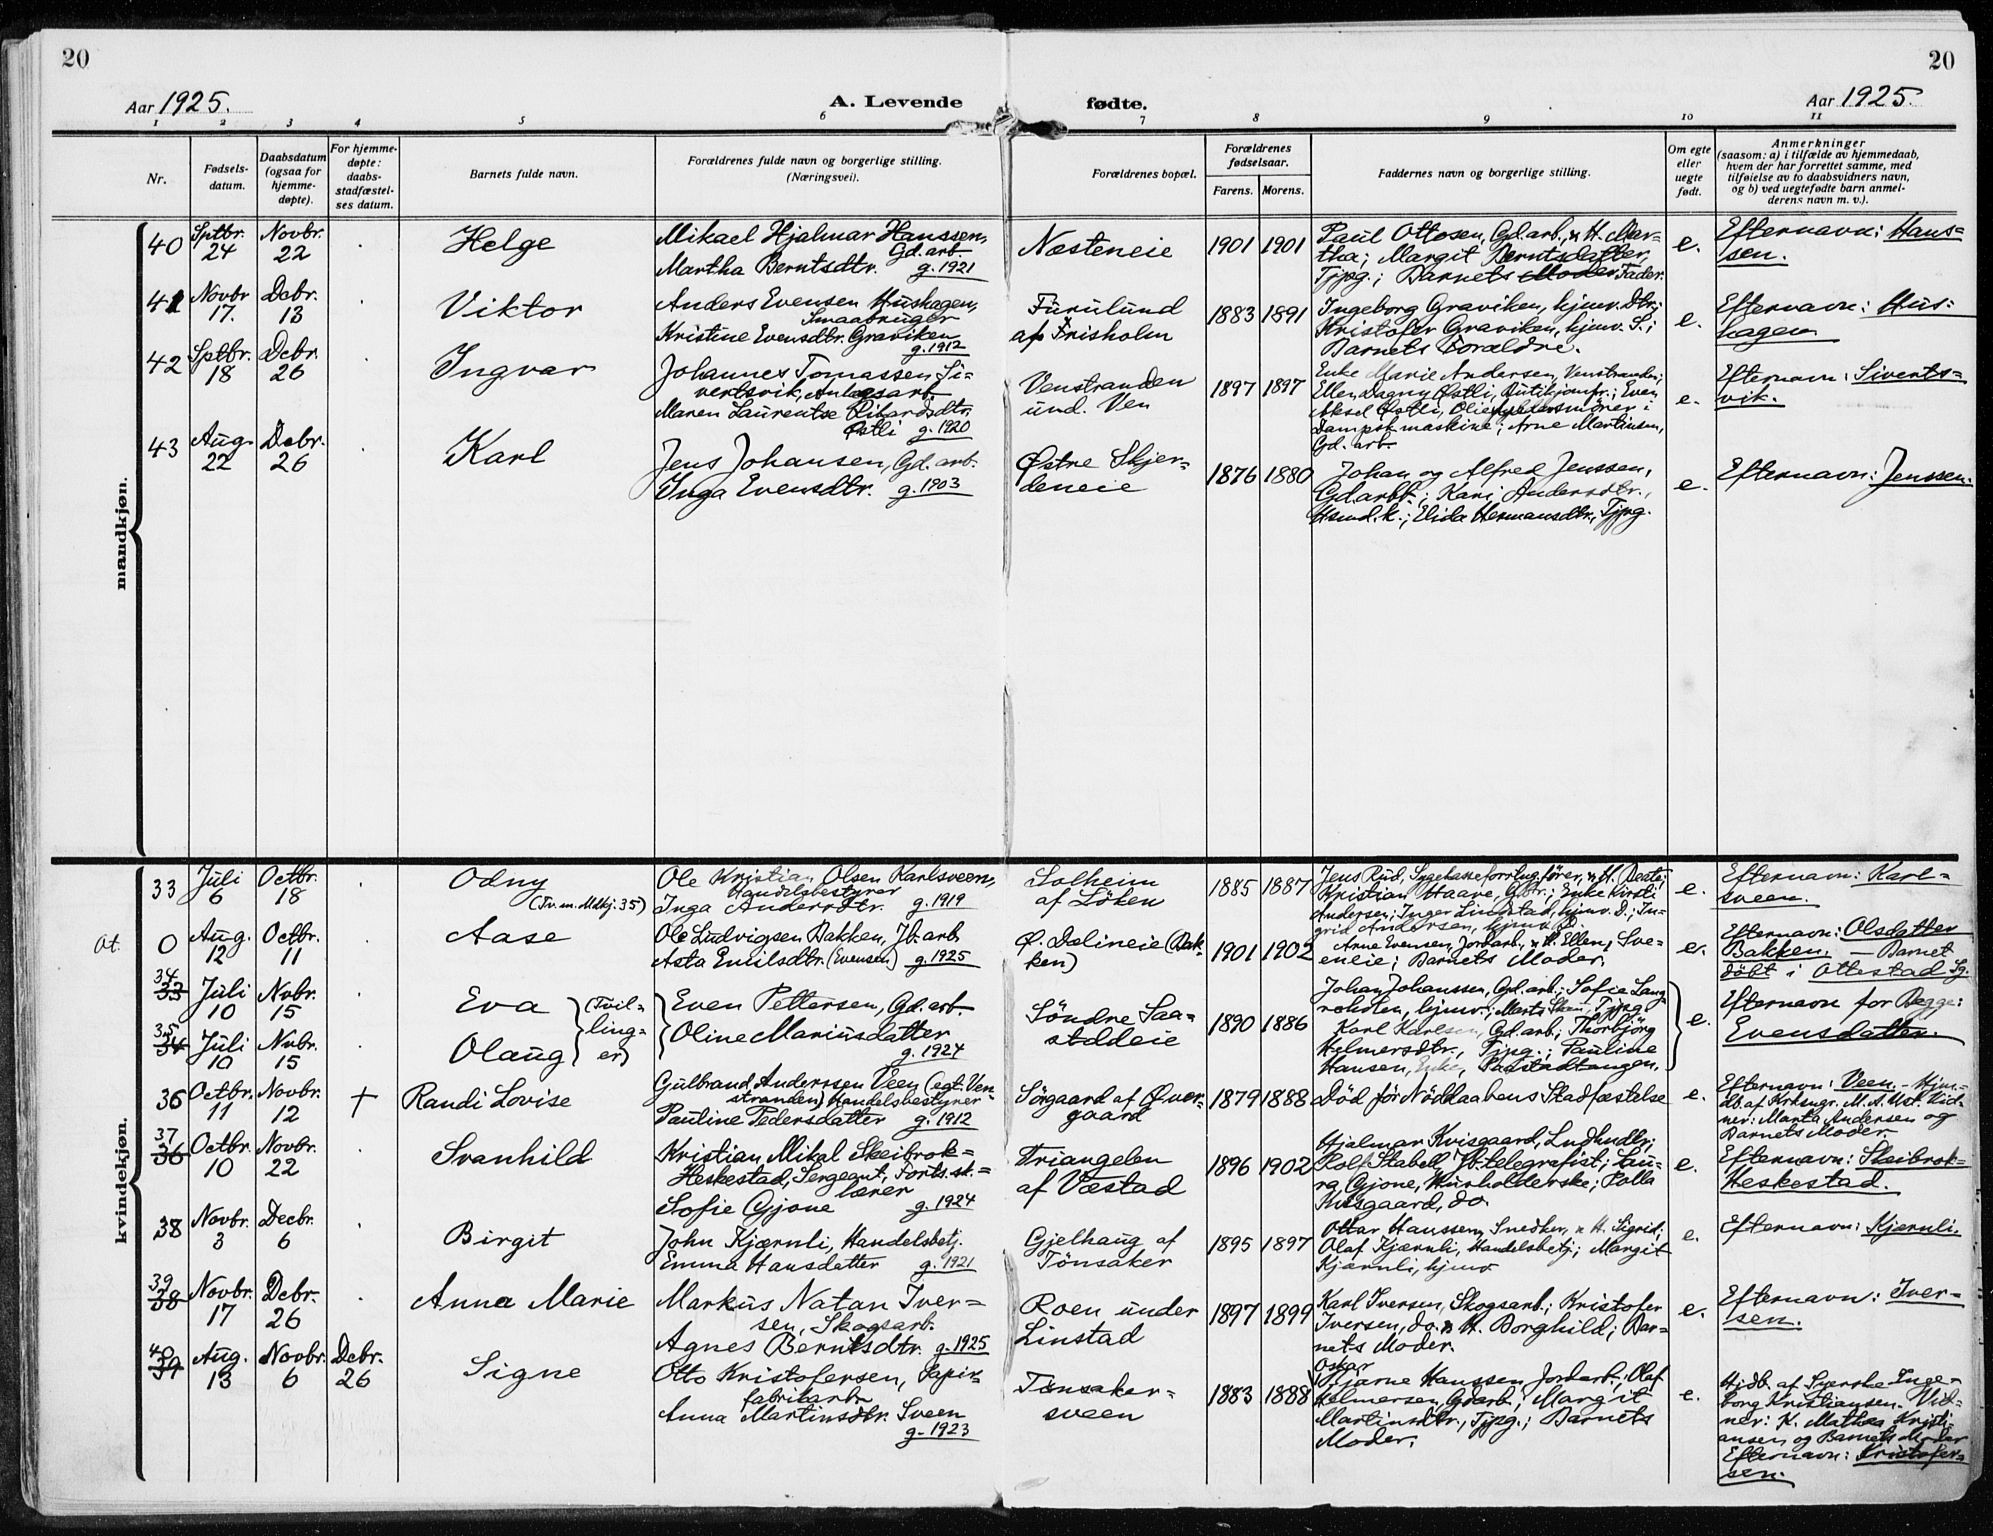 20
20
Aar 1925.
A. Levende
fødte.
Aar 1925.
1 2 3 4 5 6 7 8 9 10 11
Nr.
Fødsels-
datum.
Daabsdatum
(ogsaa for
hjemme-
døpte).
For hjemme-
døpte:
daabs-
stadfæstel-
ses datum.
Barnets fulde navn.
Forældrenes fulde navn og borgerlige stilling.
(Næringsvei).
Forældrenes bopæl.
Forældrenes
fødselsaar.
Farens. Morens.
Faddernes navn og borgerlige stilling.
Om egte
eller
uegte
født.
Anmerkninger
(saasom: a) i tilfælde av hjemmedaab,
hvem der har forrettet samme, med
tilføielse av to daabsvidners navn,
og b) ved uegtefødte barn anmel-
derens navn m. v.).
mandkjøn.
40
Sptbr.
24
Novbr.
22
Helge
Mikael Hjalmar Hanssen,
Gd. arb.
Martha Berntsdtr. g. 1921
Næsteneie
1901 1901
Paul Ottosen, Gd. arb., & H. Mar-
tha; Margit Berntsdatter,
Tjpg.; Barnets Moder. Fader.
e.
Efternavn: Hans-
sen.
41
Novbr
17.
Debr.
13
Viktor
Anders Evensen Hushagen,
Smaabruger
Kristine Evensdtr. Graviken
g. 1912
Furulund
af Frisholm
1883 1891
Ingeborg Graviken, hjmv. Dtr.;
Kristofer Graviken, hjmv. S.;
Barnets Forældre.
e.
Efternavn: Hus-
hagen.
42
Sptbr.
18
Debr.
26
Ingvar
Johannes Tomassen Si-
vertsvik, Anlægsarb.
Maren Laurentse Rikardsdtr.
Østli g. 1920
Venstranden
und. Ven
1897 1897
Enke Marie Andersen, Venstranden;
Ellen Dagny Østli, Butikjomfr.; Even
Aksel Østli, i
Dampsk maskine; Arne Martinsen,
Gd. arb.
e.
Efternavn: Siverts-
vik.
43
Aug.
22
Debr.
26
Karl
Jens Johansen, Gd. arb.
Inga Evensdtr. g. 1903
Østre Skjer-
deneie
1876 1880
Johan og Alfred Jenssen,
Gd.arbb.; Kari Andersdtr.,
Hsmd. k.; Elida Hermansdtr., Tjpg.
e.
Efternavn: Jenssen.
kvindekjøn.
33
Juli
6
Octbr.
18
Odny
(Tv. m. Mdkj. 35)
Ole Kristian Olsen Karlsveen,
Handelsbestyrer
Inga Andersdtr. g. 1919
Solheim
af Löken
1885 1887
Jens Rud, Sygekasseforretng.fører, & H. Dorte;
Kristian Haave, Gbr.; Enke Kirsti
Andersen; Inger Linstad, hjmv. D.; In-
grid Andersen, hjmv. D.
e.
Efternavn: Karl-
sveen.
Ot.
0
Aug.
12
Octbr.
11
Aase
Ole Ludvigsen Bakken, Jb. arb
Asta Emilsdtr. (Evensen) g. 1925
Ø. Dælineie (Bak-
ken)
1901 1902
Arne Evensen, Jordarb., & H. Ellen, Sve-
eneie; Barnets Moder.
e.
Efternavn: Olsdatter
Bakken. — Barnet
döbt i Ottestad Sg.
34
33
Juli
10
Nvbr.
15
Eva
35
34
Juli
10
Nvbr.
15
Olaug
(Tvil-
ling-
er)
Even Pettersen, Gd. arb.
Oline Mariusdatter
g. 1924
Söndre Saa-
stdeie
1890 1886
Johan Johanssen, Gd. arb.; Sofie Lang-
rholen, hjmv.; Marts Skau, Tjpg
Karl Karlsen, Gd. arb.; Thorbjörg
Helmersdtr., Tjpg.; Pauline
Hansen, Enke, Padstadtangen.
e.
Efternavn for Begge:
Evensdatter.
36
Octbr.
11
Novbr.
12
+
Randi Lovise
Gulbrand Anderssen Veen (egt. Ven-
stranden) Handelsbestyrer
Pauline Pedersdatter g. 1912
Sörgaard af Øver-
gaard
1879 1888
Död før Nöddaabens Stadfæstelse
e.
Efternavn: Veen. — Hjm-
db. af Krksngr. M. A. Vid-
ner: Marta Andersen og
Barnets Moder.
37
36
Octbr.
10
Novbr.
22
Svanhild
Kristian Mikal Skeibrok-
Heskestad, Sergeant, Forts.sk.-
lærer
Sofie Gjone g. 1924
Triangelen
af Væstad
1896 1902
Hjalmar Kvisgaard, Ludhndlr;
Rolf Stabell, Jb.telegrafist; Lau-
ra Gjone, Husholderske; Lolla
Kvisgaard, do.
e.
Efternavn: Skeibrok-
Heskestad.
38
Novbr.
3
Decbr.
6
Birgit
John Kjærnli, Handelsbetj.
Emma Hansdatter g. 1921
Gjelhaug af
Tönsaker
1895 1897
Ottar Hanssen, Snedker, & H. Sigrid;
Olaf Kjærnli, Handelsbetj; Margit
Kjærnli, hjmv
e.
Efternavn: Kjernli.
39
38
Novbr.
17
Debr.
26
Anna Marie
Markus Natan Iver-
sen, Skogsarb.
Agnes Berntsdtr. g. 1925
Roen under
Linstad
1897 1899
Karl Iversen, Skogsarb.; Kristofer
Iversen, do. & H. Borghild; Bar-
nets Moder.
e.
Efternavn: Iver-
sen.
40
39
Aug.
13
Novbr.
6
Debr.
26
Signe
Otto Kristofersen, Papir-
fabrikarb
Anna Martinsdtr. Sveen
g. 1923
Tönsaker-
sveen
1883 1888
Oskar
Hjarne Hanssen Jordarb.; Olaf
Helmersen, Gdarb; Margit
Martinsdtr., Tjpg.; Barnets
Moder.
e.
Hjdb. af Svenske Inge-
borg Kristiansen. Vid-
ner: K. Mathea Kristi-
ansen og Barnets Moder
Efternavn: Kristofer-
sen.